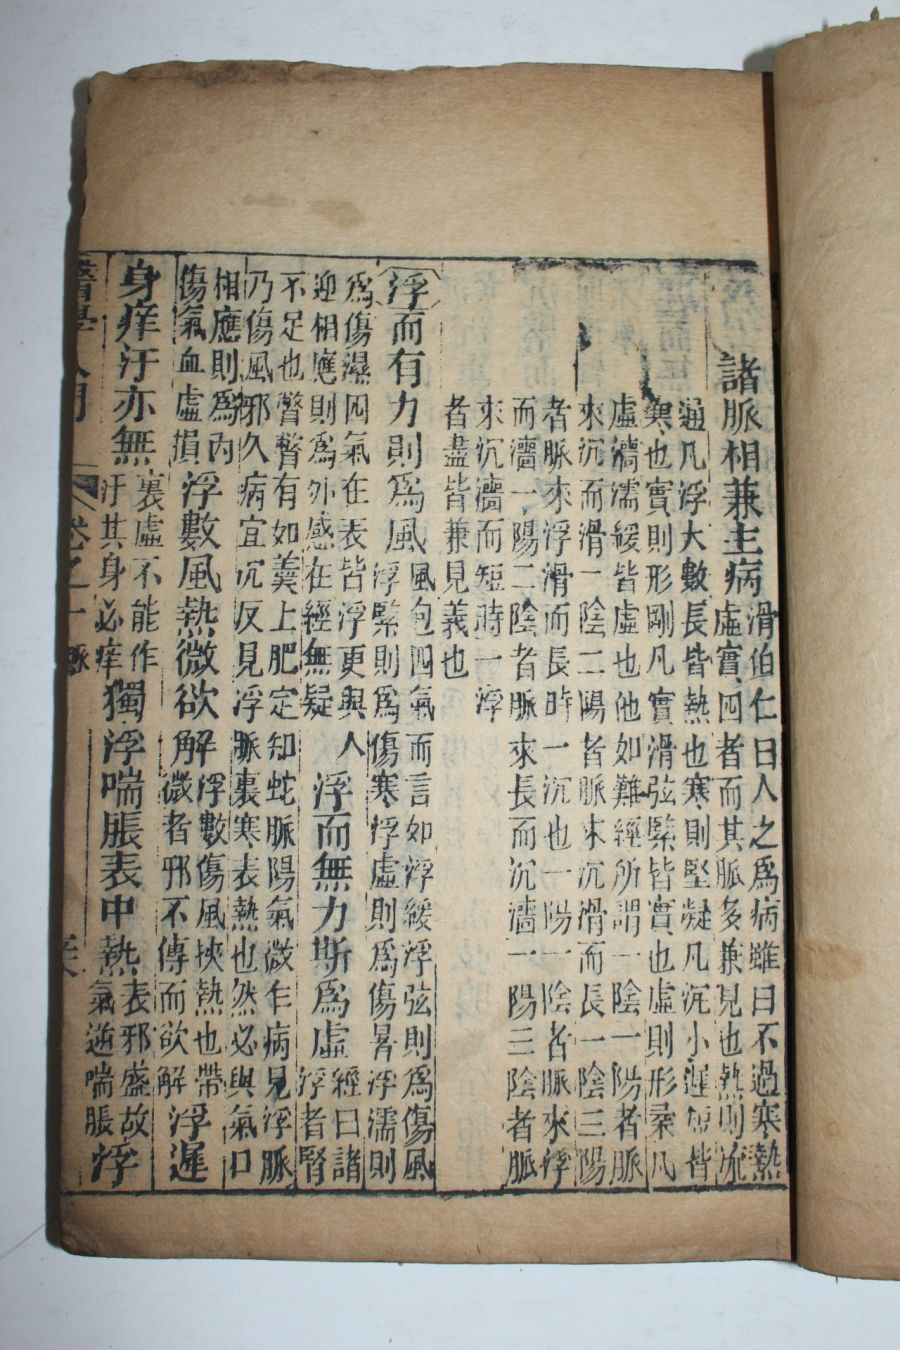 諸脈相兼主病滑伯仁曰人之爲病雖曰不過寒熱
虛實四者而其脈多兼見也熱則流
通凡浮大數長皆熱也寒則堅凝凡沉小遲短皆
寒也實則形剛凡實滑弦緊皆實也虛則形柔凡
虛濇濡緩皆虛也他如難經所謂一陰一陽者脈
來沉而滑一陰二陽者脈來沉滑而長一陰三陽
者脈來浮滑而長時一沉也一陽一陰者脈來浮
而濇一陽二陰者脈來長而沉濇一陽三陰者脈
來沉濇而短時一浮
者盡皆兼見義也
浮而有力則爲風風包四氣而言如浮緩浮弦則爲傷風
浮緊則爲傷寒浮虛則爲傷暑浮濡則
爲傷濕四氣在表皆浮更與人
迎相應則爲外感在經無疑
浮而無力斯爲虛經曰諸
浮者腎
不足也瞥瞥有如羹上肥定知蛇脈陽氣微乍病見浮脈
乃傷風邪久病宜沉反見浮脈裏寒表熱也然必與氣口
相應則爲內
傷氣血虛損
浮數風熱微欲解浮數傷風挾熱也帶
微者邪不傳而欲解
浮遲
身痒汗亦無裏虛不能作
汗其身必痒
獨浮喘脹表中熱表邪盛故
氣逆喘脹
浮
醫學入門 卷之一 脈